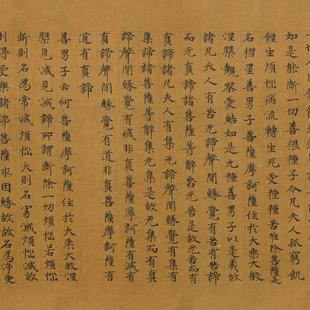 如是能斷一切善根種子令凡夫人孤窮飢
餓生煩惱病流轉生死受種種苦唯除菩薩是
名星善男子菩薩摩訶薩住於大乘大般
涅槃觀察愛結如是九種善男子以是義故
諸凡夫人有苦无諦聲聞緣覺有苦有苦諦
而无真諦諸菩薩等解苦无苦是故无苦而有
真諦諸凡夫人有集无諦聲聞緣覺有集有
集諦諸菩薩等解集无集是故无集而有真
諦聲聞緣覺有滅非真菩薩摩訶薩有滅有
真諦聲聞緣覺有道非真菩薩摩訶薩有
道有真諦
善男子云何菩薩摩訶薩住於大乘大般涅
槃見滅見滅諦所謂斷除一切煩惱若煩惱
斷則名為常滅煩惱火則名寂滅煩惱滅故
則得受樂諸佛菩薩求因緣故故名為淨更